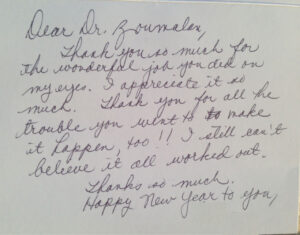 Dear Dr. Zoumalan,
Thank you so much for
the wonderful job you did on
my eyes. I appreciate it so
much. Thank you for all the
trouble you went to to make
it happen, too!! I still can't
believe it all worked out.
Thanks so much.
Happy New Year to you,